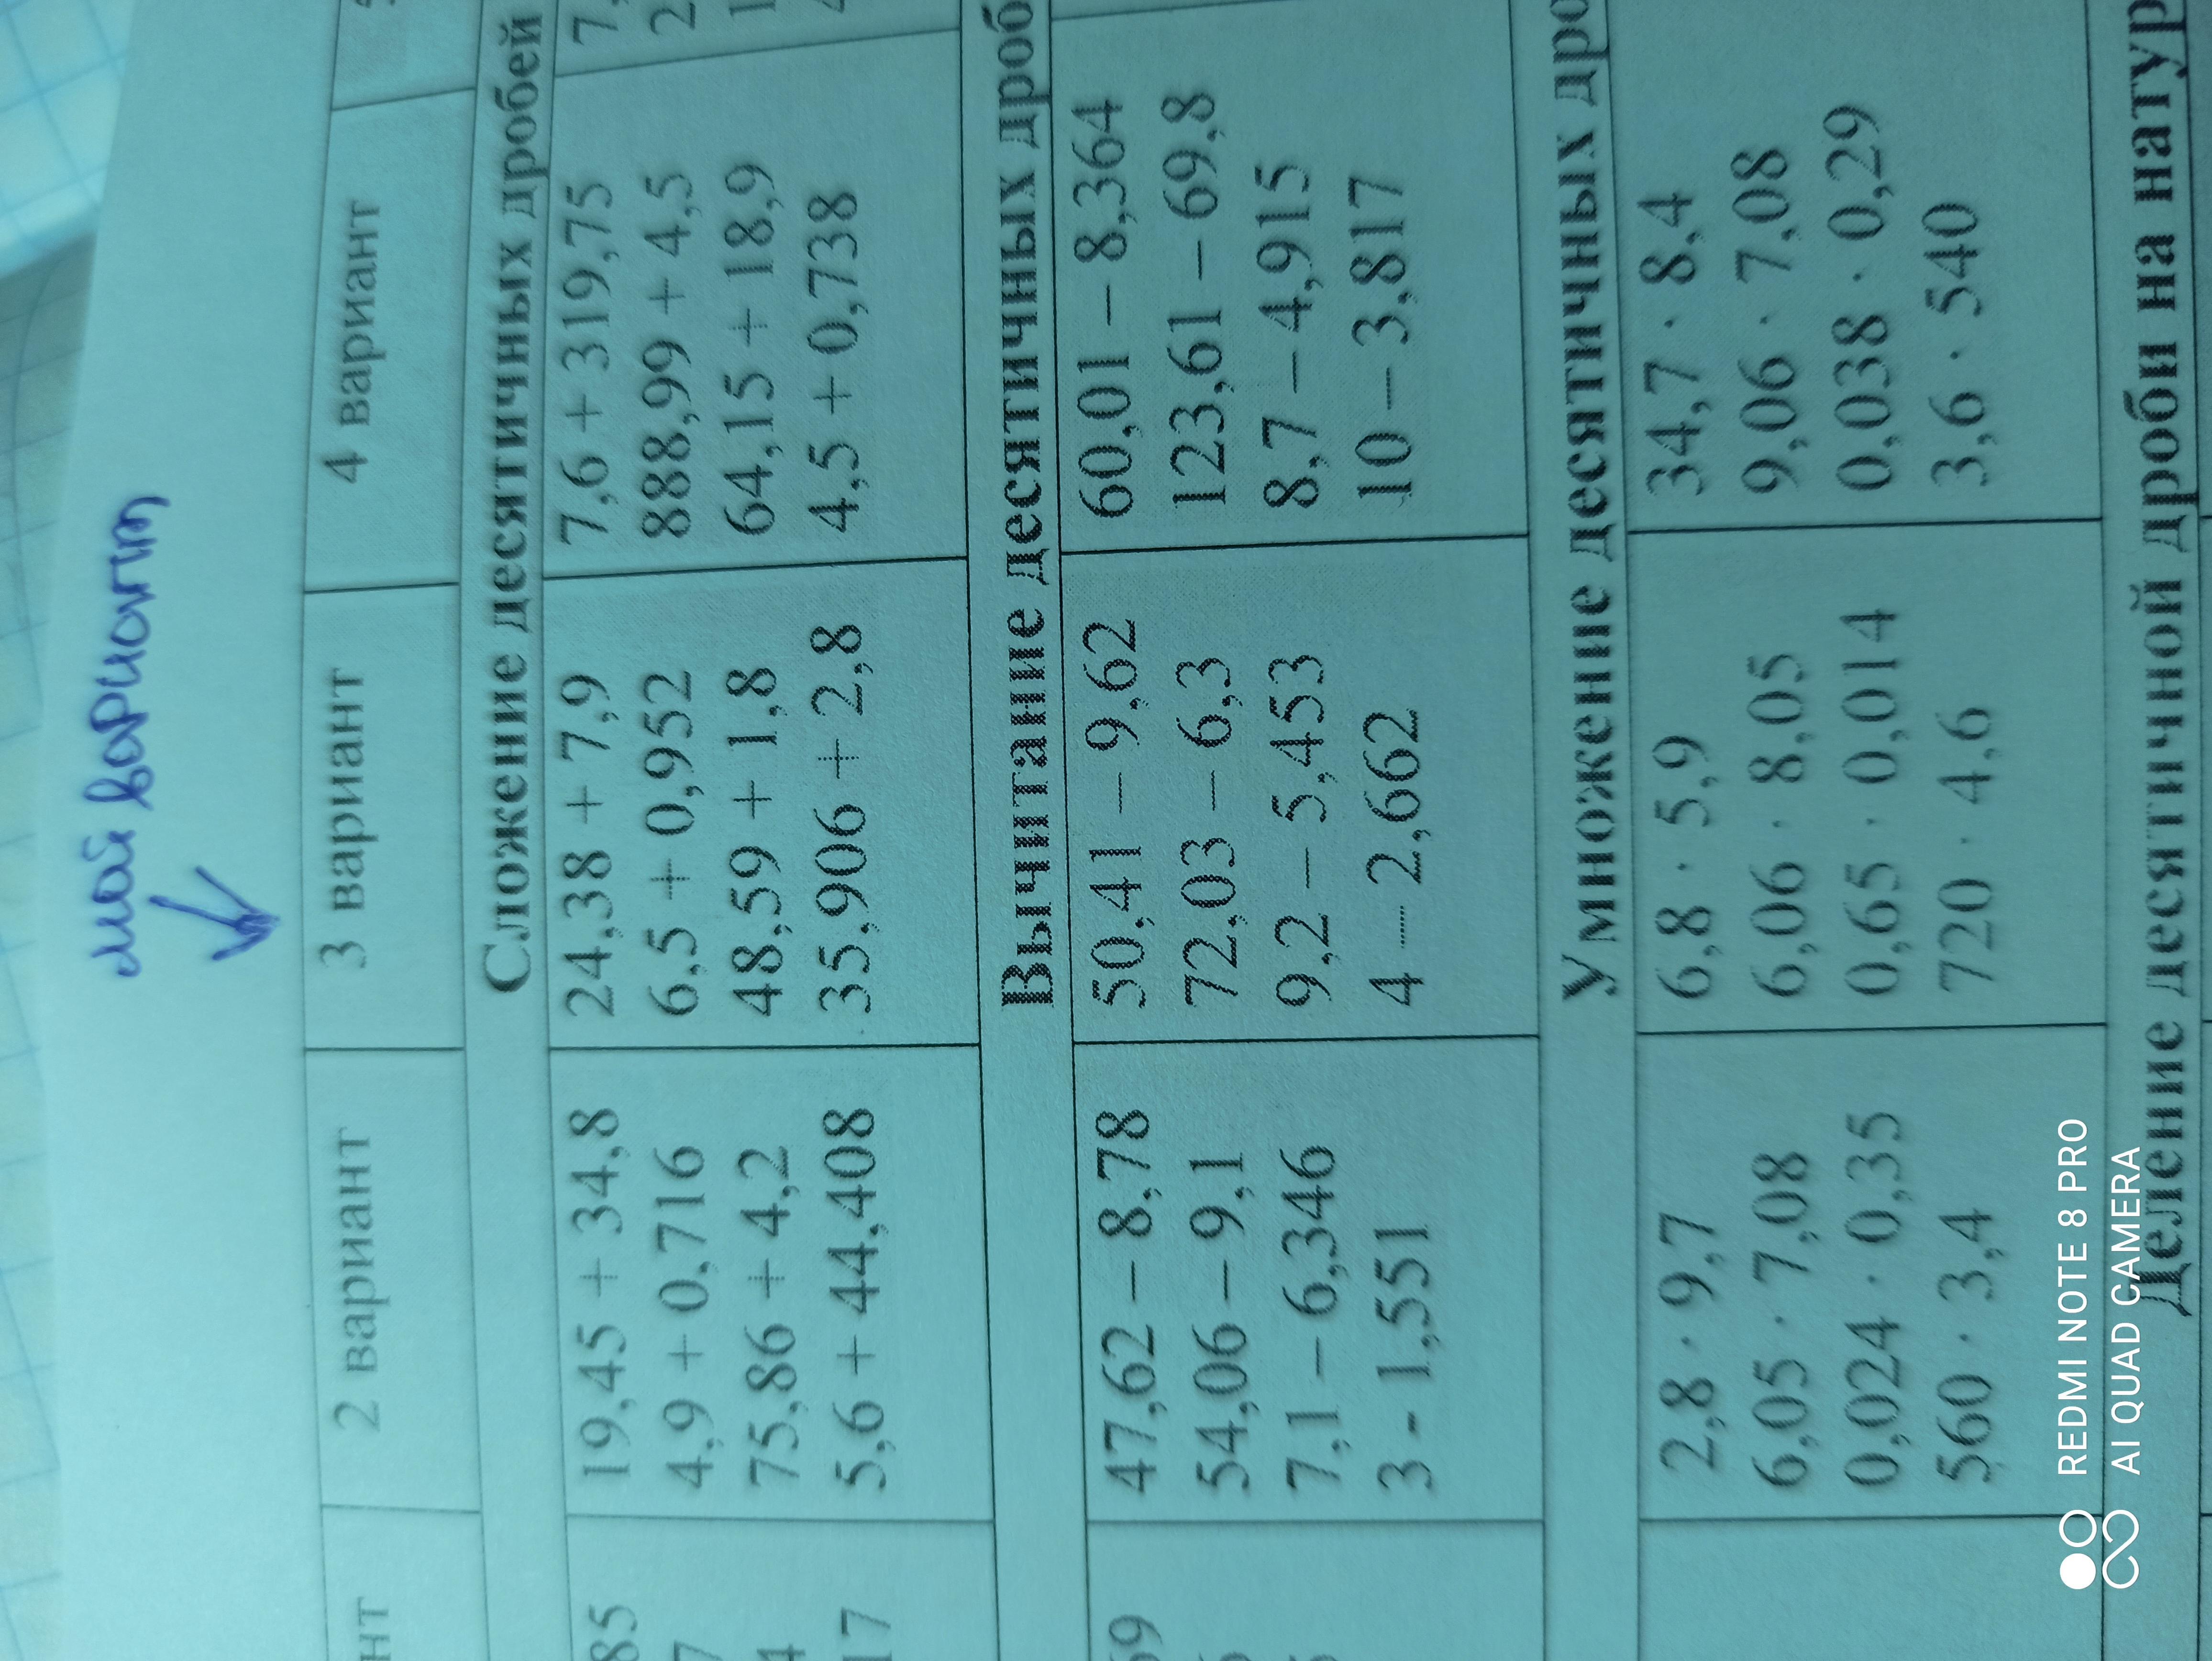 мой вариант
нт
2 вариант
3 вариант
4 вариант
Сложение десятичных дробей
85
19,45 + 34,8
24,38 + 7,9
7,6 + 319,75
7,
7
4,9 + 0,716
6,5 + 0,952
888,99 + 4,5
2
4
75,86 + 4,2
48,59 + 1,8
64,15 + 18,9
1
17
5,6 + 44,408
35,906 + 2,8
4,5 + 0,738
Вычитание десятичных дроб
69
47,62 – 8,78
50,41 – 9,62
60,01 – 8,364
54,06 – 9,1
72,03 – 6,3
123,61 – 69,8
7,1 – 6,346
9,2 – 5,453
8,7 – 4,915
3 - 1,551
4 – 2,662
10 – 3,817
Умножение десятичных дро
2,8 · 9,7
6,8 · 5,9
34,7 · 8,4
6,05 · 7,08
6,06 · 8,05
9,06 · 7,08
0,024 · 0,35
0,65 · 0,014
0,038 · 0,29
560 · 3,4
720 · 4,6
3,6 · 540
Деление десятичной дроби на натур
REDMI NOTE 8 PRO
AI QUAD CAMERA